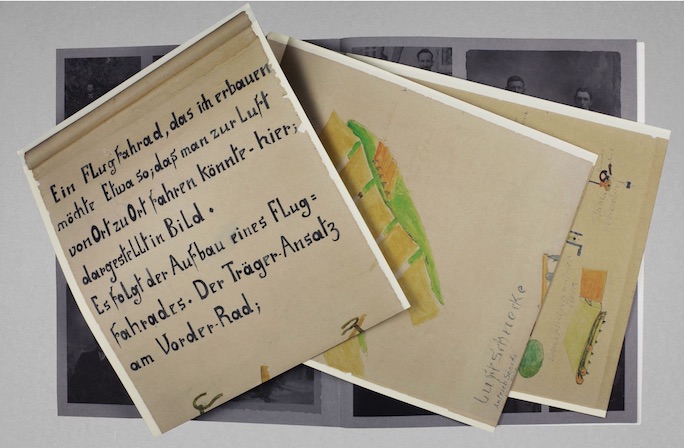 Ein Flugfahrad, das ich erbauen
möchte Etwa so; daß man zur Luft
von Ort zu Ort fahren könnte - hier;
dargestellt in Bild.
Es folgt der Aufbau eines Flug=
fahrades. Der Träger-Ansatz
am Vorder-Rad;
Luftschnecke